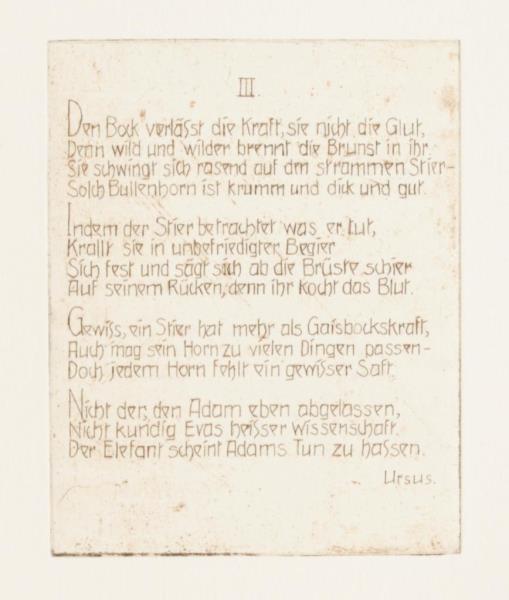 III.
Den Bock verlässt die Kraft, sie nicht die Glut,
Denn wild und wilder brennt die Brunst in ihr.
Sie schwingt sich rasend auf den strammen Stier-
Solch Bullenhorn ist krumm und dick und gut.
Indem der Stier betrachtet was er tut,
Krallt sie in unbefriedigter Begier
Sich fest und sägt sich ab die Brüste schier
Auf seinem Rücken, denn ihr kocht das Blut.
Gewiss, ein Stier hat mehr als Gaisbockskraft,
Auch mag sein Horn zu vielen Dingen passen-
Doch jedem Horn fehlt ein gewisser Saft.
Nicht der, den Adam eben abgelassen,
Nicht kundig Evas heisser Wissenschaft.
Der Elefant scheint Adams Tun zu hassen.
Ursus.